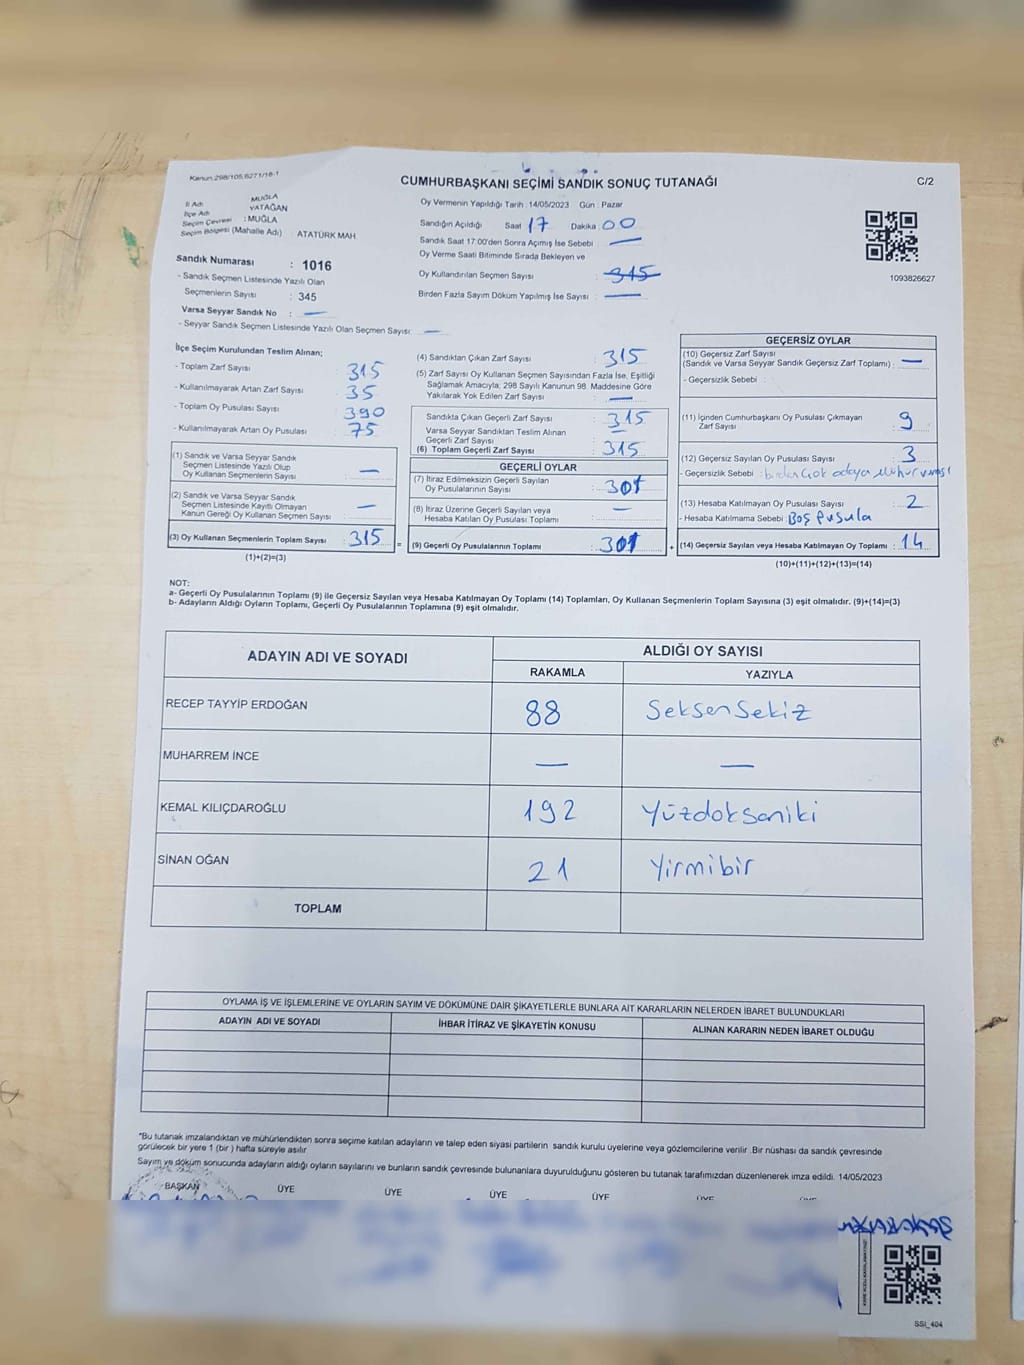 Kanun:298/105,6271/18-1
CUMHURBAŞKANI SEÇİMİ SANDIK SONUÇ TUTANAĞI
C/2
İl Adı MUĞLA
İlçe Adı YATAĞAN
Seçim Çevresi : MUĞLA
Seçim Bölgesi (Mahalle Adı) ATATÜRK MAH
Sandık Numarası : 1016
- Sandık Seçmen Listesinde Yazılı Olan
Seçmenlerin Sayısı : 345
Varsa Seyyar Sandık No : —
- Seyyar Sandık Seçmen Listesinde Yazılı Olan Seçmen Sayısı: —
Oy Vermenin Yapıldığı Tarih : 14/05/2023 Gün : Pazar
Sandığın Açıldığı Saat 17 Dakika 00
Sandık Saat 17:00'den Sonra Açılmış İse Sebebi : —
Oy Verme Saati Bitiminde Sırada Bekleyen ve
Oy Kullandırılan Seçmen Sayısı : 315
Birden Fazla Sayım Döküm Yapılmış İse Sayısı : —
1093826627
İlçe Seçim Kurulundan Teslim Alınan;
- Toplam Zarf Sayısı : 315
- Kullanılmayarak Artan Zarf Sayısı : 35
- Toplam Oy Pusulası Sayısı : 390
- Kullanılmayarak Artan Oy Pusulası : 75
(1) Sandık ve Varsa Seyyar Sandık
Seçmen Listesinde Yazılı Olup
Oy Kullanan Seçmenlerin Sayısı : —
(2) Sandık ve Varsa Seyyar Sandık
Seçmen Listesinde Kayıtlı Olmayan
Kanun Gereği Oy Kullanan Seçmen Sayısı : —
(3) Oy Kullanan Seçmenlerin Toplam Sayısı : 315
(1)+(2)=(3)
(4) Sandıktan Çıkan Zarf Sayısı : 315
(5) Zarf Sayısı Oy Kullanan Seçmen Sayısından Fazla İse, Eşitliği
Sağlamak Amacıyla; 298 Sayılı Kanunun 98. Maddesine Göre
Yakılarak Yok Edilen Zarf Sayısı : —
Sandıkta Çıkan Geçerli Zarf Sayısı : 315
Varsa Seyyar Sandıktan Teslim Alınan
Geçerli Zarf Sayısı : —
(6) Toplam Geçerli Zarf Sayısı : 315
GEÇERLİ OYLAR
(7) İtiraz Edilmeksizin Geçerli Sayılan
Oy Pusulalarının Sayısı : 301
(8) İtiraz Üzerine Geçerli Sayılan veya
Hesaba Katılan Oy Pusulası Toplamı : —
= (9) Geçerli Oy Pusulalarının Toplamı : 301
GEÇERSİZ OYLAR
(10) Geçersiz Zarf Sayısı
(Sandık ve Varsa Seyyar Sandık Geçersiz Zarf Toplamı) : —
- Geçersizlik Sebebi :
(11) İçinden Cumhurbaşkanı Oy Pusulası Çıkmayan
Zarf Sayısı : 9
(12) Geçersiz Sayılan Oy Pusulası Sayısı : 3
- Geçersizlik Sebebi : birden çok adaya mühür
(13) Hesaba Katılmayan Oy Pusulası Sayısı : 2
- Hesaba Katılmama Sebebi : Boş Pusula
+ (14) Geçersiz Sayılan veya Hesaba Katılmayan Oy Toplamı : 14
(10)+(11)+(12)+(13)=(14)
NOT:
a- Geçerli Oy Pusulalarının Toplamı (9) ile Geçersiz Sayılan veya Hesaba Katılmayan Oy Toplamı (14) Toplamları, Oy Kullanan Seçmenlerin Toplam Sayısına (3) eşit olmalıdır. (9)+(14)=(3)
b- Adayların Aldığı Oyların Toplamı, Geçerli Oy Pusulalarının Toplamına (9) eşit olmalıdır.
ADAYIN ADI VE SOYADI ALDIĞI OY SAYISI
RAKAMLA YAZIYLA
RECEP TAYYİP ERDOĞAN 88 SeksenSekiz
MUHARREM İNCE — —
KEMAL KILIÇDAROĞLU 192 Yüzdoksaniki
SİNAN OĞAN 21 Yirmibir
TOPLAM
OYLAMA İŞ VE İŞLEMLERİNE VE OYLARIN SAYIM VE DÖKÜMÜNE DAİR ŞİKAYETLERLE BUNLARA AİT KARARLARIN NELERDEN İBARET BULUNDUKLARI
ADAYIN ADI VE SOYADI İHBAR İTİRAZ VE ŞİKAYETİN KONUSU ALINAN KARARIN NEDEN İBARET OLDUĞU
*Bu tutanak imzalandıktan ve mühürlendikten sonra seçime katılan adayların ve talep eden siyasi partilerin sandık kurulu üyelerine veya gözlemcilerine verilir. Bir nüshası da sandık çevresinde
görülecek bir yere 1 (bir) hafta süreyle asılır.
Sayım ve döküm sonucunda adayların aldığı oyların sayılarını ve bunların sandık çevresinde bulunanlara duyurulduğunu gösteren bu tutanak tarafımızdan düzenlenerek imza edildi. 14/05/2023
BAŞKAN ÜYE ÜYE ÜYE ÜYE ÜYE
SSİ_404